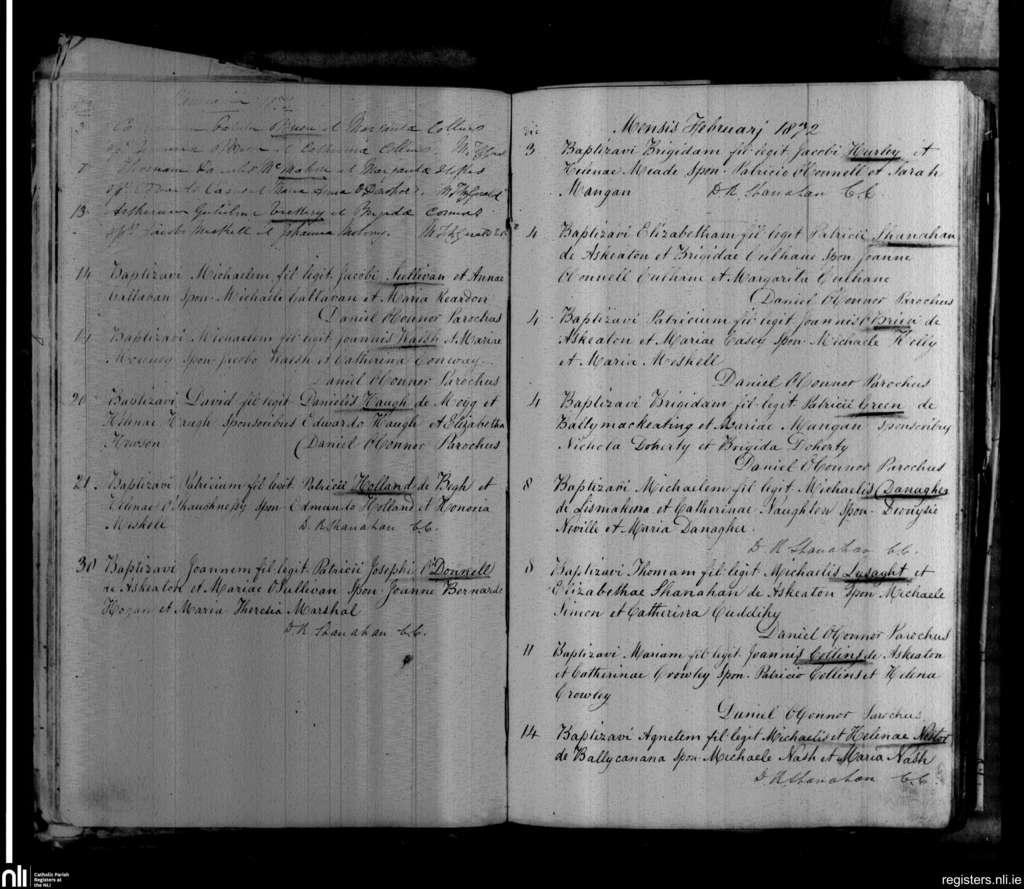 3
Collins
Catherina Collins. M. Fitzgerald
8 Thomam Danielis McMahon et Margarita
Anna O'Donohoe. M Fitzgerald
13 Gulielmi et Brigida Connors
Jacobo Meskell et Johanna M. Fitzgerald
14 Baptizavi Michaelem fil legit Jacobi Sullivan et Annae
Callavan Spon Michaele Callavan et Maria Reardon
Daniel O'Connor Parochus
Baptizavi Michaelem fil legit Joannis Walsh et Mariae
Mooney Spon Jacobo Walsh et Catherina Conway
Daniel O'Connor Parochus
20 Baptizavi David fil legit Danielis Haugh de Moyg et
Helenae Haugh Sponsoribus Edwardo Haugh et Elizabetha
Daniel O'Connor Parochus
21 Baptizavi Patricium fil legit Patricii Holland de Begh et
Ellenae O'Shaughnessy Spon Edmundo Holland et Honoria
Meskell D. R. Shanahan C.C.
30 Baptizavi Joannem fil legit Patricii Josephi O'Donnell
de Askeaton et Mariae O'Sullivan Spon Joanne Bernardo
Hogan et Maria Theresia Marshal
D. R. Shanahan C.C.
Mensis Februarj 1872
3 Baptizavi Brigidam fil legit Jacobi Hurley et
Helenae Meade Spon Patricio O'Connell et Sarah
Mangan D. R. Shanahan C.C
4 Baptizavi Elizabetham fil legit Patricii Shanahan
de Askeaton et Brigidae Culhane Spon Joanne
O'Connell Culhane et Margarita Culhane
Daniel O'Connor Parochus
4 Baptizavi Patricium fil legit Joannis O'Brien de
Askeaton et Mariae Casey Spon Michaele
et Maria Meskell
Daniel O'Connor Parochus
4 Baptizavi Brigidam fil legit Patricii Green de
Ballymackeating et Mariae Mangan Sponsoribus
Nichola Doherty et Brigida Doherty
Daniel O'Connor Parochus
8 Baptizavi Michaelem fil legit Michaelis Danagher
de Lismakeera et Catherinae Naughton Spon Dionysio
Neville et Maria Danagher
D. R. Shanahan C.C.
8 Baptizavi Thomam fil legit Michaelis Lysaght et
Elizabethae Shanahan de Askeaton Spon Michaele
et Catherina Cuddihy
Daniel O'Connor Parochus
11 Baptizavi Mariam fil legit Joannis Collins de Askeaton
et Catherinae Crowley Spon Patricio Collins et Helena
Crowley
Daniel O'Connor Parochus
14 Baptizavi Agnetem fil legit Michaelis et Helenae Nestor
de Ballycanana Spon Michaele Nash et Maria Nash
D. R. Shanahan C.C.
nli Catholic Parish
Registers at
the NLI
registers.nli.ie